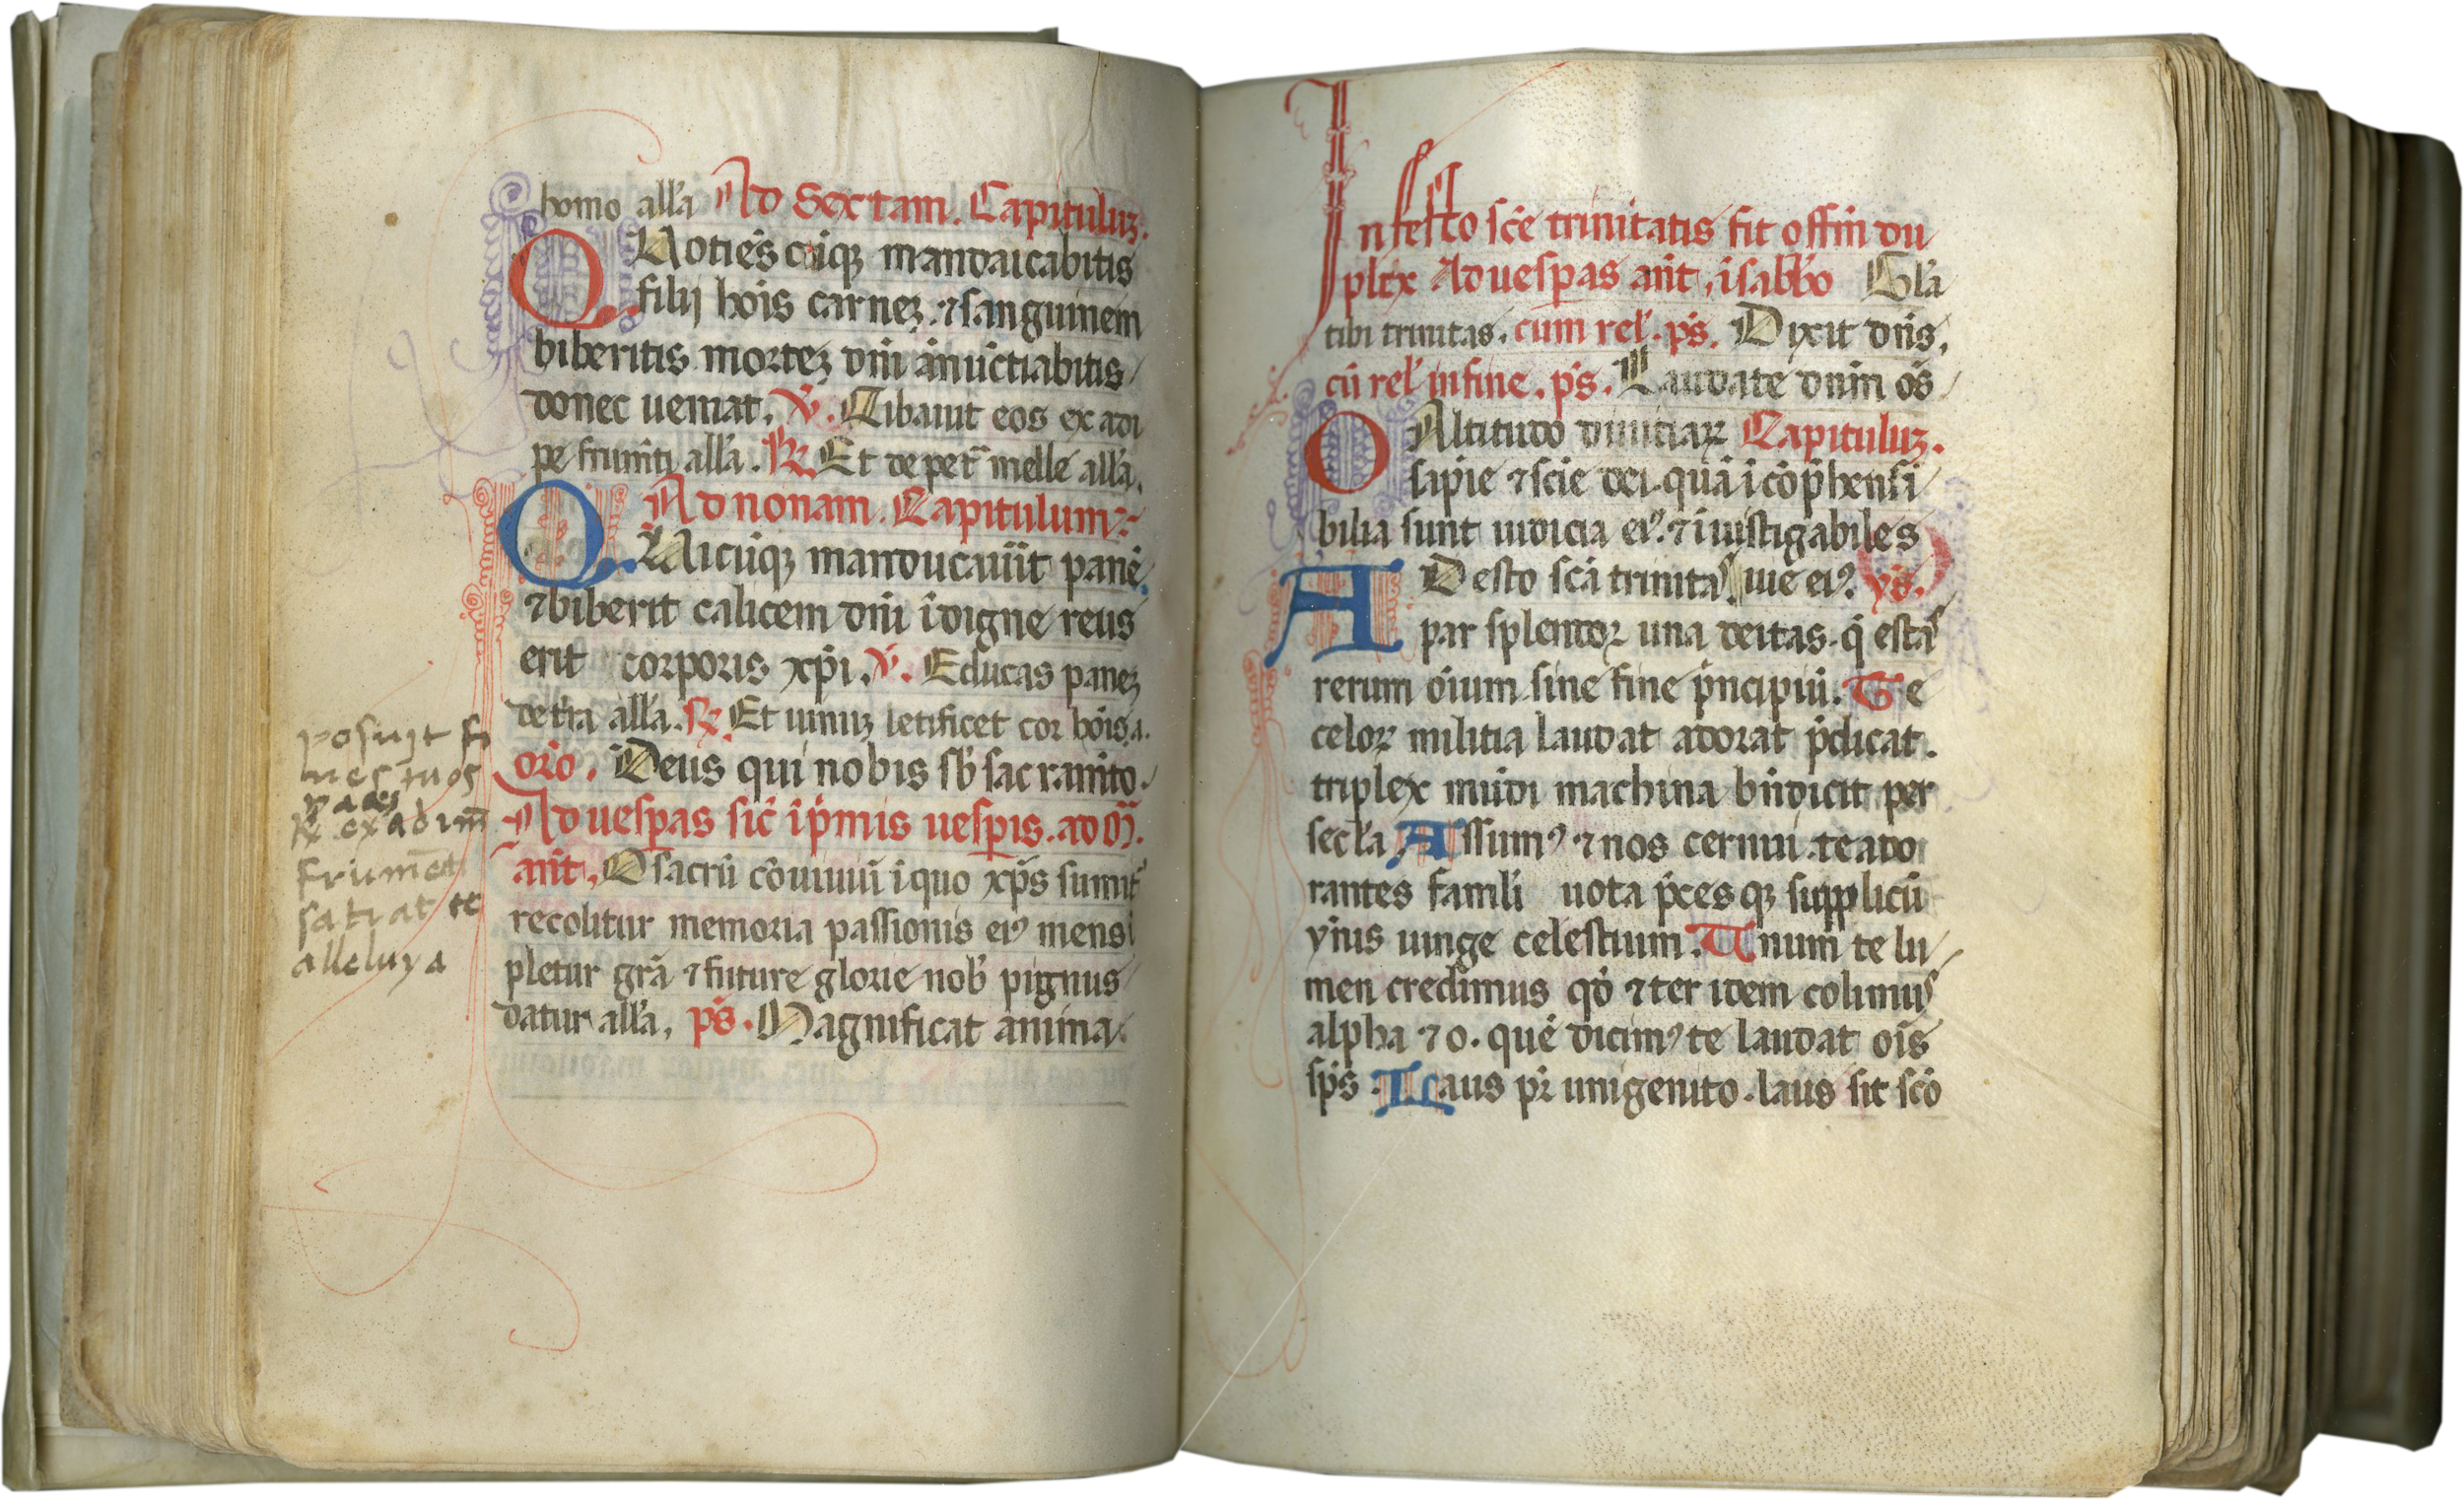 homo all'a Ad Sextam. Capituluꝫ.
Quotiēscūiqꝫ mandaicabitis
filij hoīs carneꝫ. ⁊ sanguinem
biberitis morteꝫ dn̄i ānūctiabitis
donec ueniat. ℣. Cibauit eos ex adi
pe frum̄ti all'a. ℟. Et de pet̄ melle all'a.
Ad nonam. Capitulum
Quicūqꝫ manducau̅it panē
⁊ biberit calicem dn̄i īdigne reus
erit corporis xp̄i. ℣. Educas paneꝫ
de t̄ra all'a. ℟. Et uinuꝫ letificet cor hōis. a.
or̄o. Deus qui nobis sb̄ sacram̄to.
Ad uesꝑas sic̄ ip̄mis uesꝑis. ad M̄.
an̄t. O sacrū cōuiuiū ī quo xp̄s sumit᷑
recolitur memoria passionis eiꝰ mens ī
pletur grā ⁊ future glorie nob̄ pignus
datur all'a. ps̄. Magnificat anima.
posuit fi
nes tuos
paceꝫ
℟ ex adim̄
frum̄et
satiat te
alleluya
In festo sc̄e trinitatis fit offm̄ du
plex Ad uesꝑas an̄t, ī sabb̄o Gl'a
tibi trinitas. cum rel'. ps̄. Dixit dn̄s.
cū rel' in fine. ps̄. Laudate dnm̄ om̄s
O Altitudo diuitiaꝝ Capituluꝫ.
sapīe ⁊ scīe dei. quā ī cōp̄hensi
bilia sunt iudicia eiꝰ. ⁊ ī uistigabiles
Adesto scā trinitas uie eiꝰ. ys̄.
par splendor una deitas. q̄ estas
rerum oīum sine fine p̄ncipiū. Te
celoꝝ militia laudat adorat p̄dicat.
triplex mūdi machina bn̄dicit per
secl'a. Assumꝰ ⁊ nos cernui. te ado
rantes famli uota p̄cesqꝫ supplicū
ym̄s iunge celestium. Unum te lu
men credimus qd̄ ⁊ ter idem colimus
alpha ⁊ o. quē dicimꝰ te laudat oīs
sp̄s. Laus pr̄i unigenito. laus sit scō